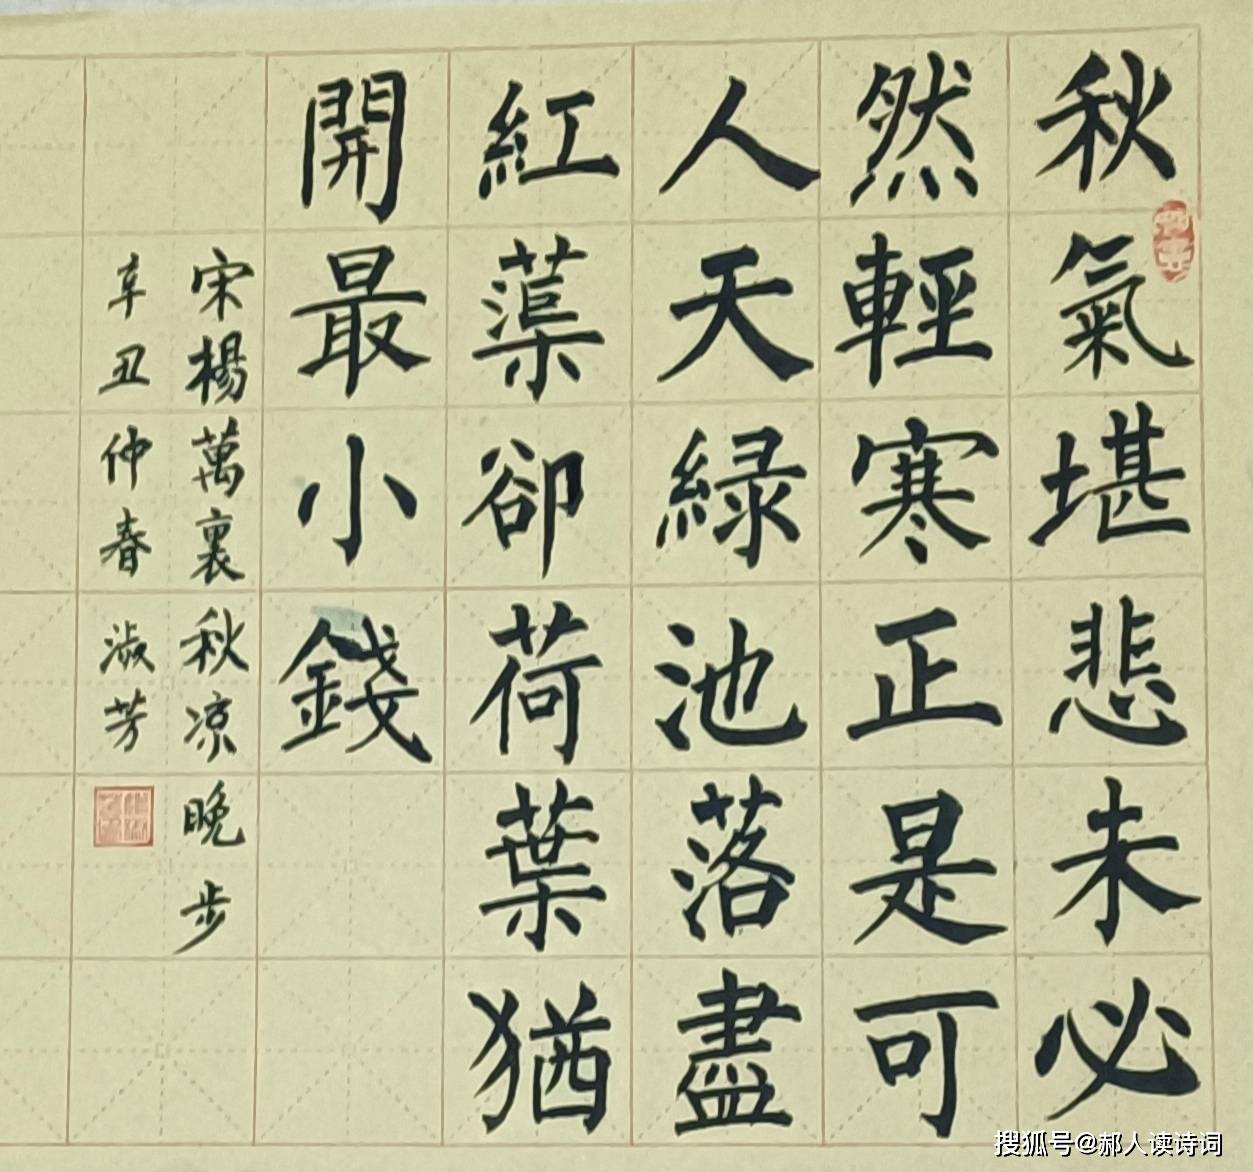 秋氣堪悲未必
然輕寒正是可
人天緑池落盡
紅蕖卻荷葉猶
開最小錢
宋楊萬裏秋凉晚步
辛丑仲春淑芳
搜狐号@郝人读诗词